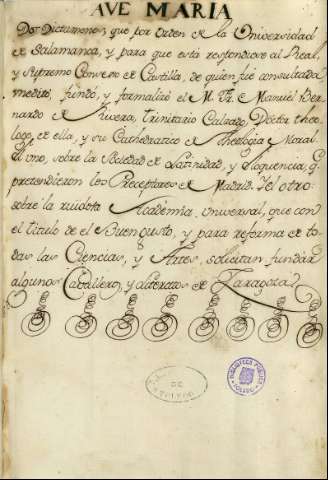 AVE MARIA
Dos Dictamenes, que por orden de la Universidad
de Salamanca, y para que esta respondiese al Real,
y Supremo Consejo de Castilla, de quien fue consultada
meditó, fundó, y formalizó el M. Fr. Manuel Ber-
nardo de Rivera, Trinitario Calzado, Doctor Theo-
logo de ella, y su Cathedratico de Theologia Moral.
El uno, sobre la Sociedad de Latinidad, y Eloquencia, q
pretendieron los Preceptores de Madrid. Y el otro:
sobre la ruidosa Academia, Universal, que con
el titulo de el Buen gusto, y para reforma de to-
das las Ciencias, y Artes, solicitan fundar
algunos Caballeros, y Literatos de Zaragoza
DE
TOLEDO
BIBLIOTECA PUBLICA
TOLEDO